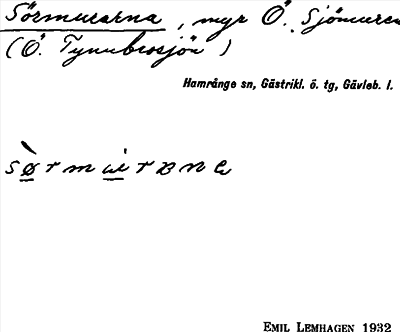 Sörmurarna, myr Ö. Sjömuren
(Ö. Tynnbrosjön)
Hamrånge sn, Gästrikl. ö. tg, Gävleb. l.
EMIL LEMHAGEN 1932